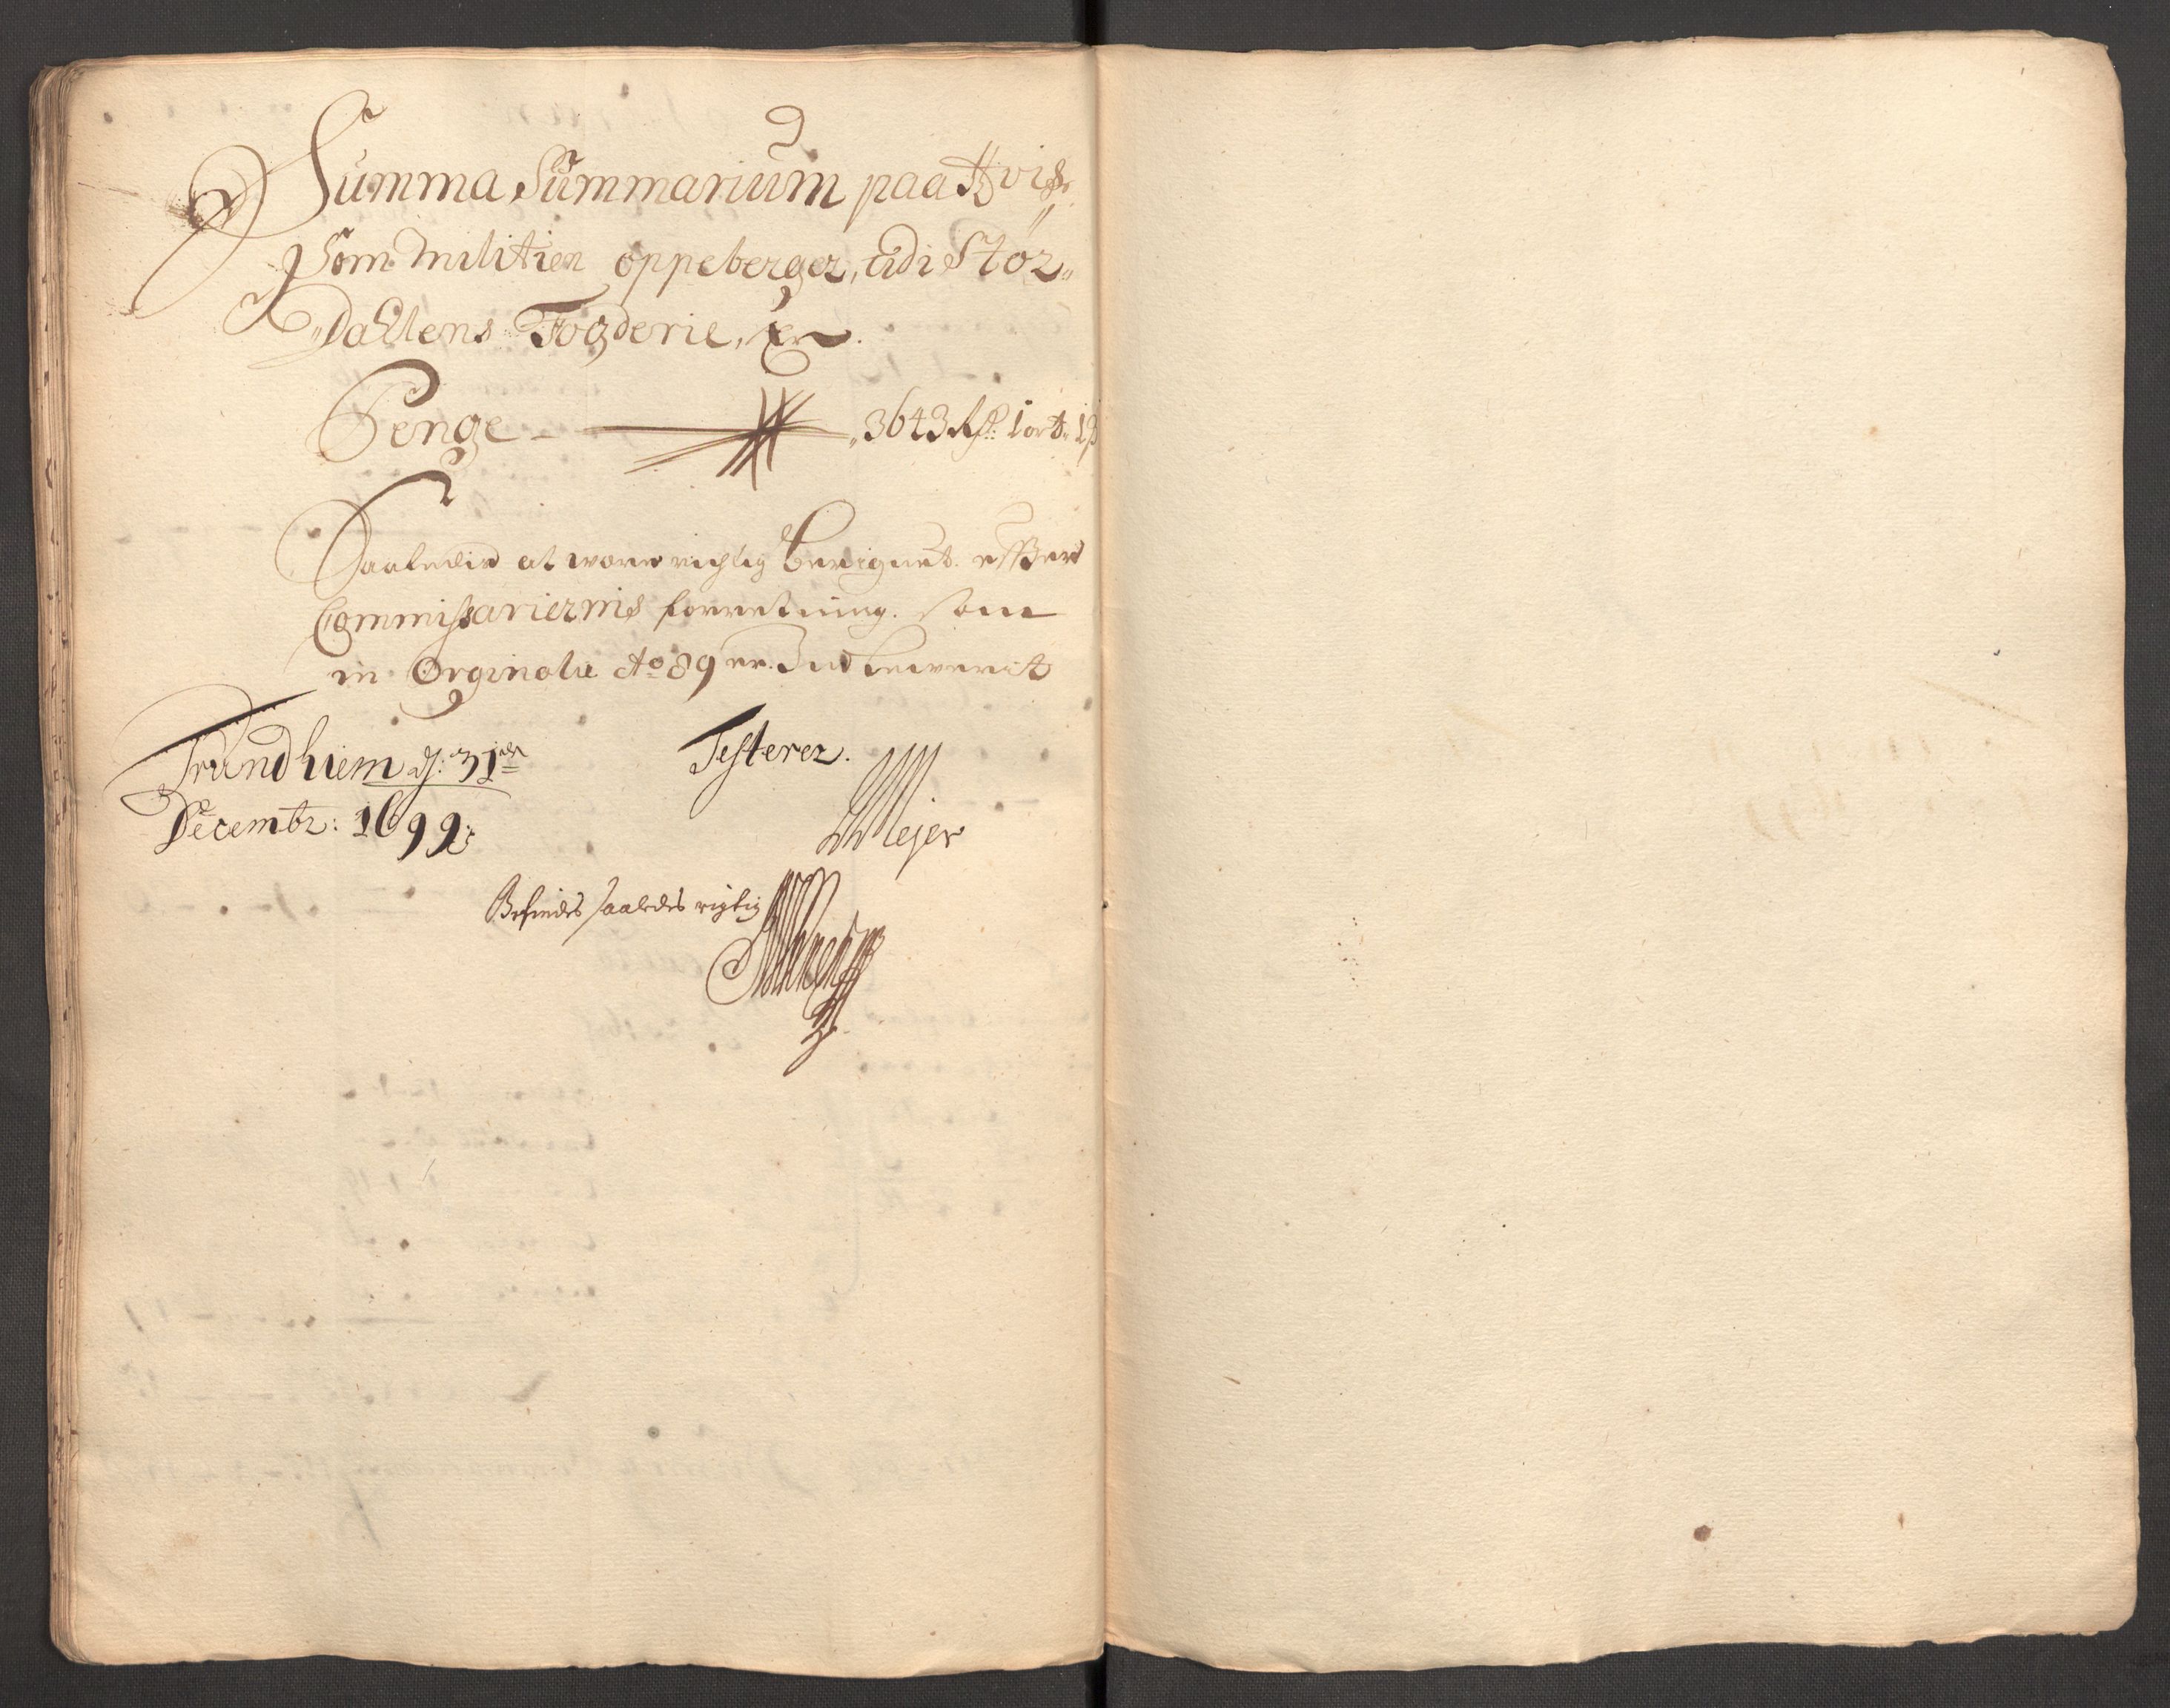 Summa Summarium paa Hvis
Som Militien oppeberger, udi Stør
Dahlens Fogderie, Er
Penge - 3643 Rd: 1 ort 1 s
Saaledis at were richtig beregnet effter
Commissariernis forretning. som
in Orginalie Ao 89 er Indleverit
Trundhiem d: 31de
Decembr: 1699:
Testerer.
Mejer
Befindes saaledes rigtig